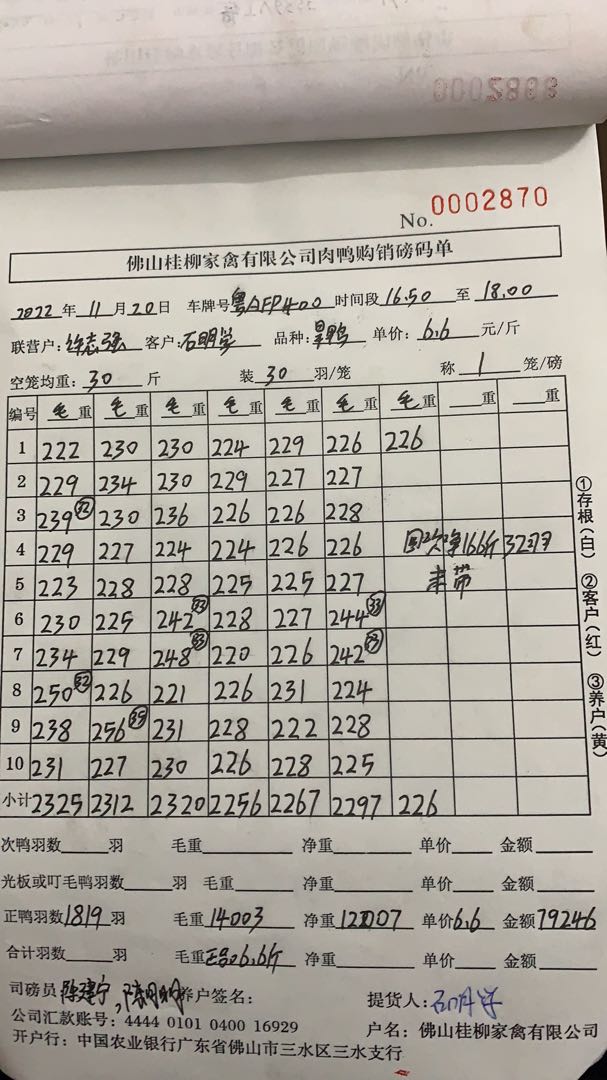 No. 0002870
佛山桂柳家禽有限公司肉鸭购销磅码单
2022年11月20日 车牌号粤AFP400 时间段16.50至18.00
联营户: 客户:石明学 品种: 单价:6.6元/斤
空笼均重:30斤 装30羽/笼 称1笼/磅
编号 毛重 毛重 毛重 毛重 毛重 毛重 毛重 重 重
1 222 230 230 224 229 226 226
2 229 234 230 229 227 227
3 239 32 230 236 226 226 228
4 229 227 224 224 226 226 净166斤32羽
5 223 228 228 225 225 227 未带
6 230 225 242 33 228 227 244 33
7 234 229 248 33 220 226 242 33
8 250 32 226 221 226 231 224
9 238 256 35 231 228 222 228
10 231 227 230 226 228 225
小计 2325 2312 2320 2256 2267 2297 226
次鸭羽数 羽 毛重 净重 单价 金额
光板或叮毛鸭羽数 羽 毛重 净重 单价 金额
正鸭羽数1819羽 毛重14003 净重12007 单价6.6 金额79246
合计羽数 羽 毛重 6.6斤 净重 单价 金额
司磅员: 养户签名: 提货人:石明学
公司汇款账号: 4444 0101 0400 16929 户名: 佛山桂柳家禽有限公司
开户行: 中国农业银行广东省佛山市三水区三水支行
①存根(白) ②客户(红) ③养户(黄)